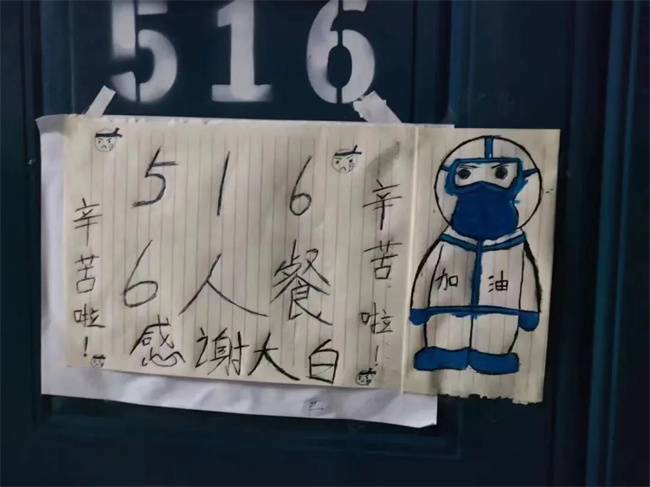 516
辛苦啦！
516
6人餐
感谢大白
辛苦啦！
加油